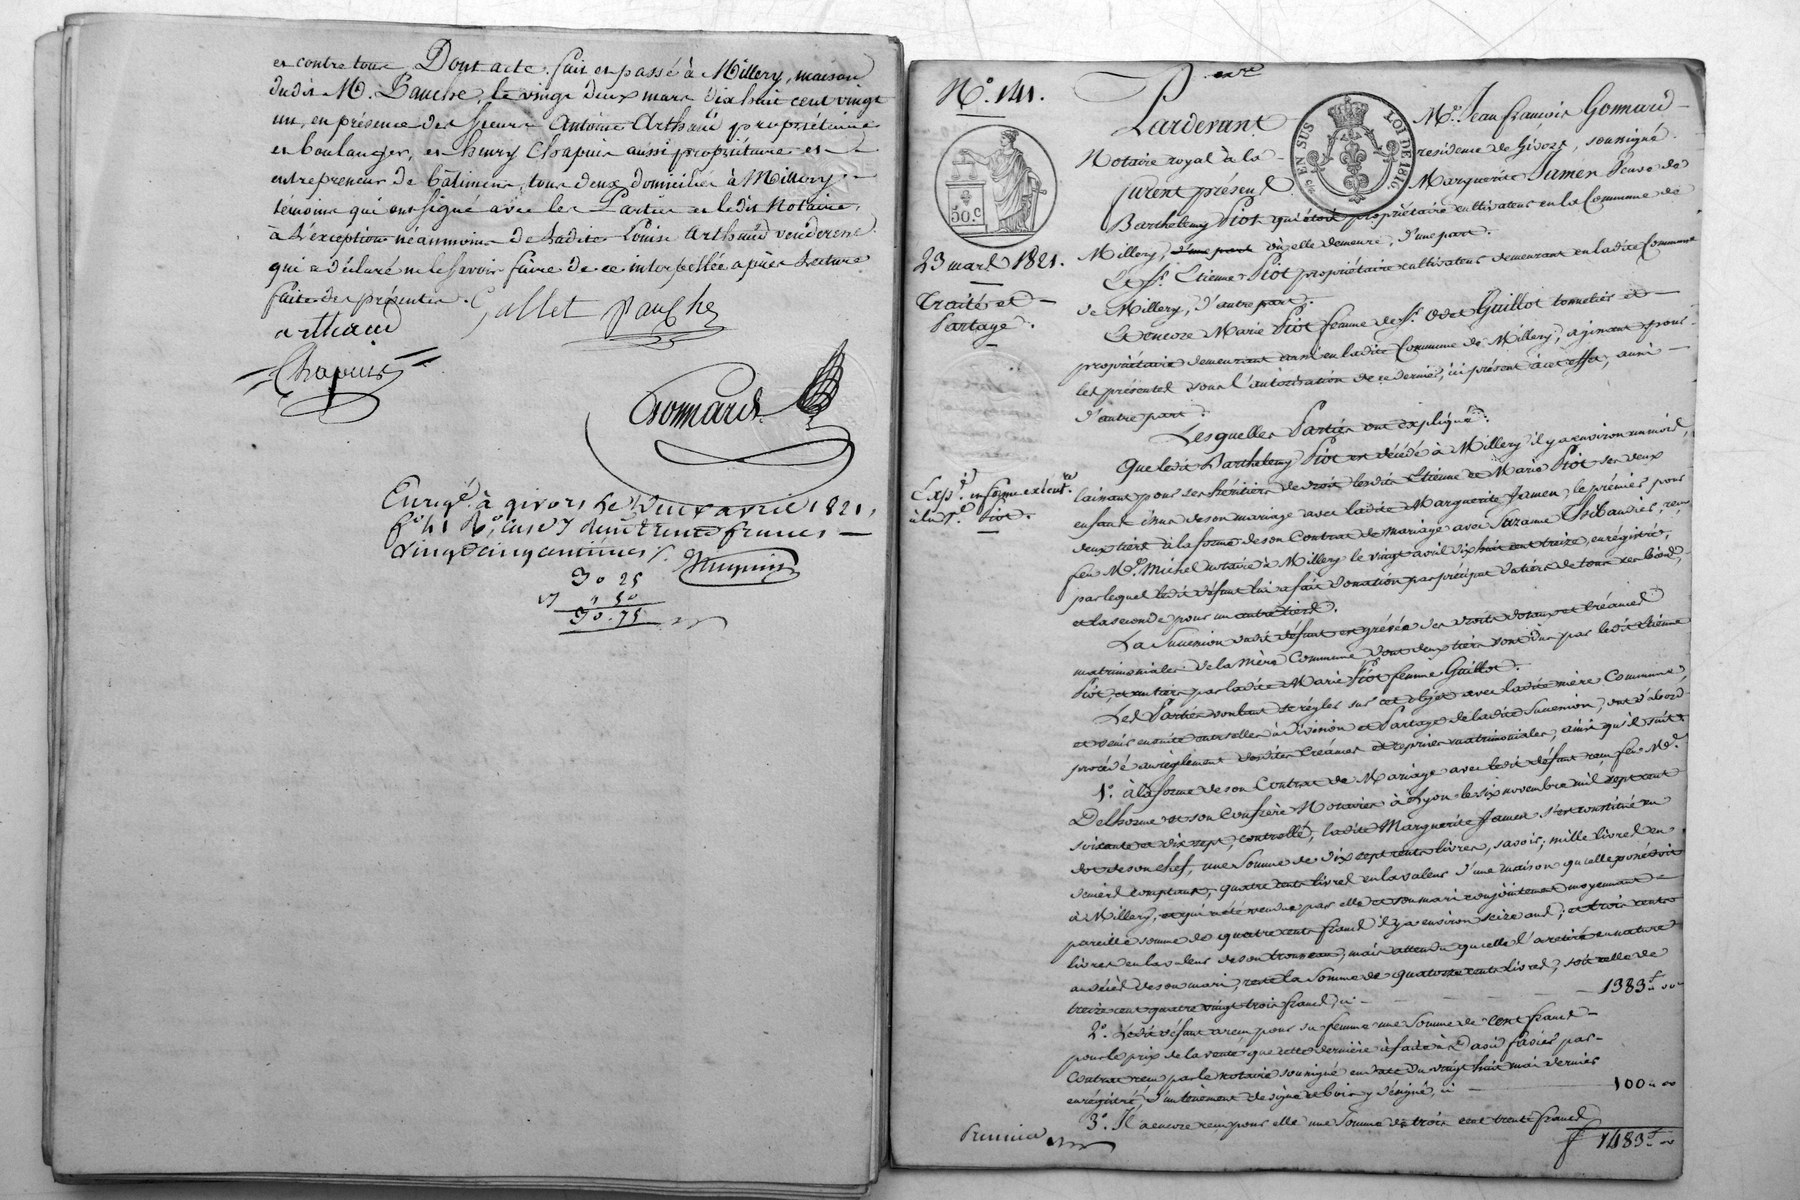 et contre tous. Dont acte fait et passé à Millery, maison
dudit M. Pauche, le vingt deux mars dix huit cent vingt
un, en présence des Sieurs Antoine Arthaud propriétaire
et boulanger, et henry Chapuis aussi propriétaire et
entrepreneur de bâtimens, tous deux domiciliés à Millery,
témoins qui ont signé avec les Parties et ledit Notaire,
à l'exception néanmoins de ladite Louise Arthaud venderesse
qui a déclaré ne le savoir faire de ce interpellée après lecture
faite des présentes.
Gallet Pauche
arthaud
Chapuis
Gonnard
Enregé à givors le deux avril 1821,
fo 41 Ro, cases 7 trente francs
vingt cinq centimes
30 25
" 50
30.75
No. 141.
50.c
23 mars 1821.
Traité et
Partage.
Expd. in forme exécutre
à la ve. Piot.
EN SUS
LOI DE 1816
Pardevant Me. Jean françois Gonnard
Notaire royal à la residence de Givors, soussigné.
furent présens Marguerite Jamen Veuve de
Barthelemy Piot qui étoit propriétaire cultivateur en la Commune de
Millery, d'une part où elle demeure, d'une part.
Le Sr. Etienne Piot propriétaire cultivateur demeurant en ladite Commune
de Millery, d'autre part.
Et encore Marie Piot femme de Sr. Odet Guillot tonnelier et
propriétaire demeurant aussi en ladite Commune de Millery, agissant pour
les présentes sous l'autorisation de ce dernier, ici présent à cet effet, aussi
d'autre part.
Lesquelles Parties ont expliqué:
Que ledit Barthelemy Piot est décédé à Millery il y a environ un mois,
laissant pour ses héritiers de droit lesdits Etienne et Marie Piot ses deux
enfans issus de son mariage avec ladite Marguerite Jamen, le premier pour
deux tiers à la forme de son Contrat de mariage avec Suzanne Thibaudier, reçu
feu Me. Michel notaire à Millery le vingt avril dix huit cent treize, enregistré,
par lequel ledit défunt lui a fait donation par préciput du tiers de tous ses biens,
et la seconde pour un autre tiers.
La Succession dudit défunt est grévée des droits dotaux et créances
matrimoniales de la mère Commune dont deux tiers sont dus par ledit Etienne
Piot, et un tiers par ladite Marie Piot femme Guillot.
Les Parties voulant se régler sur cet objet avec ladite mère Commune,
et venir ensuite entr'elles à division et Partage de ladite Succession, ont d'abord
procédé au règlement desdites Créances et reprises matrimoniales, ainsi qu'il suit:
1o. à la forme de son Contrat de Mariage avec ledit défunt reçu feu Me.
Delhorme et son Confrère Notaires à Lyon le six novembre mil sept cent
soixante et dix sept, controllé, ladite Marguerite Jamen s'est constitué en
dot de son chef, une Somme de dix sept cents livres, savoir; mille livres en
deniers comptans, quatre cents livres en la valeur d'une maison qu'elle possédoit
à Millery, et qui a été vendue par elle et son mari conjointement moyennant
pareille somme de quatre cents francs il y a environ seize ans; et trois cents
livres en la valeur de son trousseau, mais attendu qu'elle l'a retiré en nature
au décès de son mari, reste la Somme de quatorze cents livres, soit celle de
treize cent quatre vingt trois francs, ci 1383f "
2o. Ledit défunt a reçu pour sa femme une Somme de cent francs
pour le prix de la vente que cette dernière a faite à par
Contrat reçu par le notaire soussigné en date du vingt huit mai dernier
enregistré, d'un tenement de vigne et bois y désigné, ci 100 "
3o. Il a encore reçu pour elle une Somme de trois cent trente francs
f 1483f "
Premier